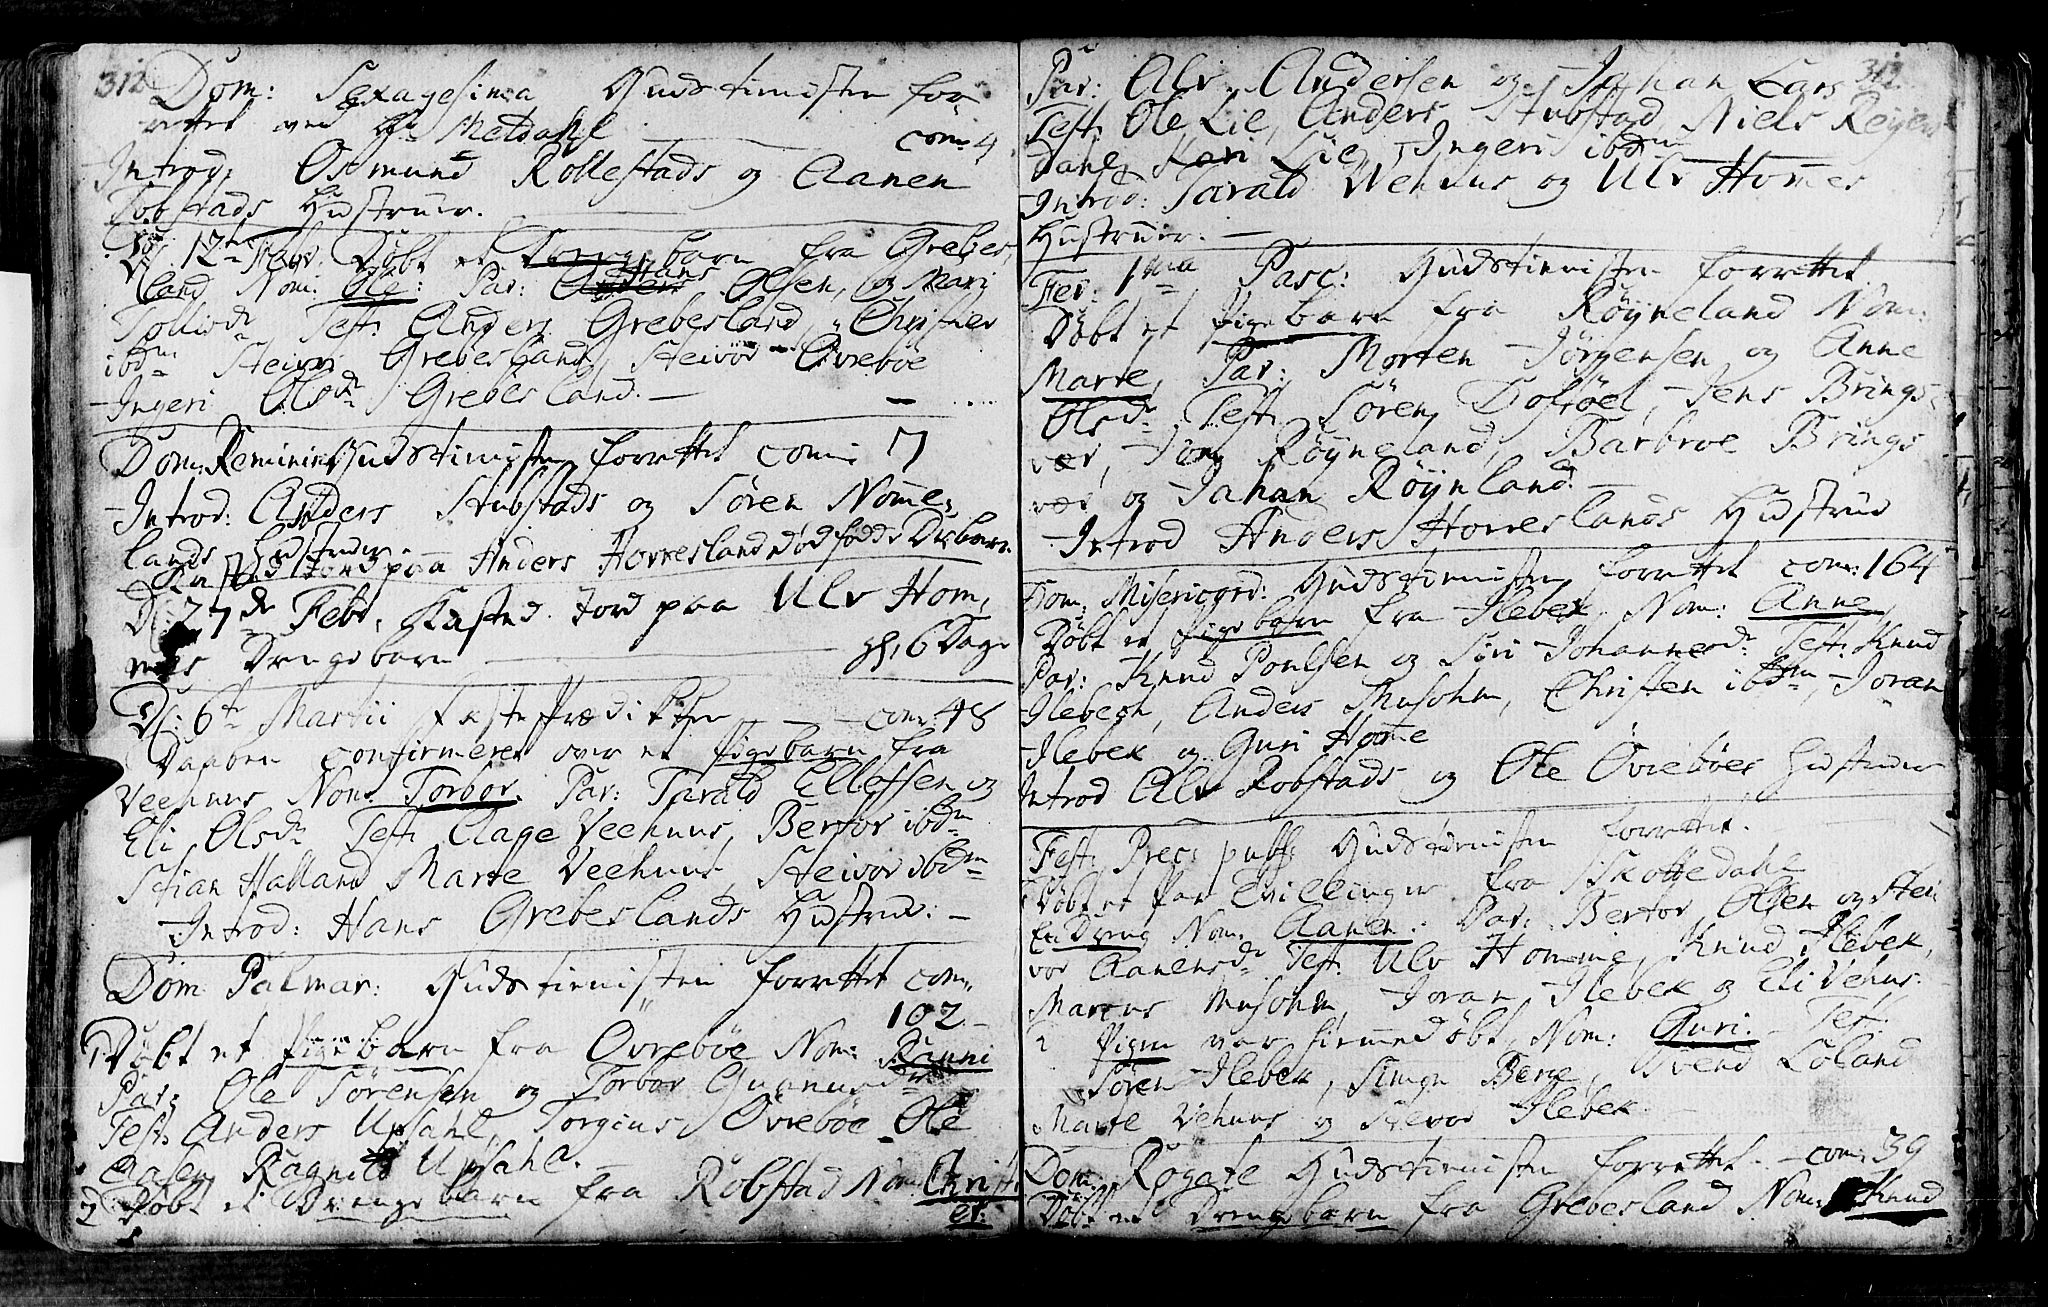 312
Dom: Sexagesima Gudstienisten for
rettet ved Hr Meldahl com: 4
Introd: Osmund Rollestads og Aanen
Tobstads Hustruer.
D. 12te Febr. Døbt et Drengebarn fra Grebes,
land Nom: Ole: Par: Hans Olsen, og Mari
Tollisdr Test: Anders Grebesland, Christen
ibdm Grebesland, Steivor Øvrebøe
Ingeri Olsdr Grebesland. —
Dom: Reminisc: Gudstienisten forrettet com: 7
Introd: Anders Stubstads og Søren Nomme,
lands Hustruer.
Kasted Jord paa Anders Horreslands dødfødde Drbarn
D. 27de Febr. Kasted Jord paa Ulv Hom,
mes Drengebarn — gl. 6 Dage
D: 6te Martii Fasteprædiken — com: 48
Daaben confirmeret over et Pigebarn fra
Veehuus Nom: Torbor. Par: Tarald Ellefsen og
Eli Olsdr Test: Aage Veehuus, Bertor ibdm
Stian Halland Marte Veehuus, Steivor ibdm
Introd: Hans Grebeslands Hustrue: —
Dom Palmar: Gudstienisten forrettet com:
102
1 Døbt et Pigebarn fra Øvrebøe Nom: Rinni
Par: Ole Sørensen og Torbor Gunmundsdr
Test: Anders Upsahl, Torgius Øvrebøe Ole
Aasen, Ragnild Upsahl. —
2 Døbt et Drengebarn fra Robstad Nom: Christi
en:
Par: Alv Andersen og Johan Lars
Test: Ole Lie, Anders Stubstad Niels Reyers
dahl, Kari Lie, Ingeri ibdm
Introd: Tarald Vehuus og Ulv Hommes
Hustruer. —
Fer: 1ma Pasc: Gudstienisten forrettet
Døbt et Pigebarn fra Røyneland Nom:
Marte, Par: Morten Jørgensen og Anne
Olsdr Test: Søren Dostøel, Jens Brings,
vær, Røyneland, Barbroe Brings
vær og Johan Røynland. —
Introd Anders Horreslands Hustrue
Dom: Misericord: Gudstienisten forrettet com: 164
Døbt et Pigebarn fra Ilebek, Nom: Anne,
Par: Knud Poulsen og Siri Johannesdr Test: Knud
Ilebech, Anders Musohm, Christen ibdm, Joran
Ilebek og Guri Home
Introd Alv Robstads og Ole Øvrebøes Hustruer
Fest: Prec: publ: Gudstienisten forrettet.
Døbt et Par Tvillinger fra Skottedahl
En Dreng Nom: Aanen. Par: Bertor Olsen og Stei
vor Aanensdr Test: Ulv Homme, Knud Ilebek,
Marcus Musohm Joran Ilebek og Eli Vehus.
2 Pigen var hiemmedøbt, Nom: Guri. Test:
Søren Ilebek, Simon Berge, Svend Løland
Marte Vehuus og Steivor Ilebek
Dom: Rogate Gudstienisten forrettet. — com: 39
Døbt et Drengebarn fra Grebesland Nom: Knud